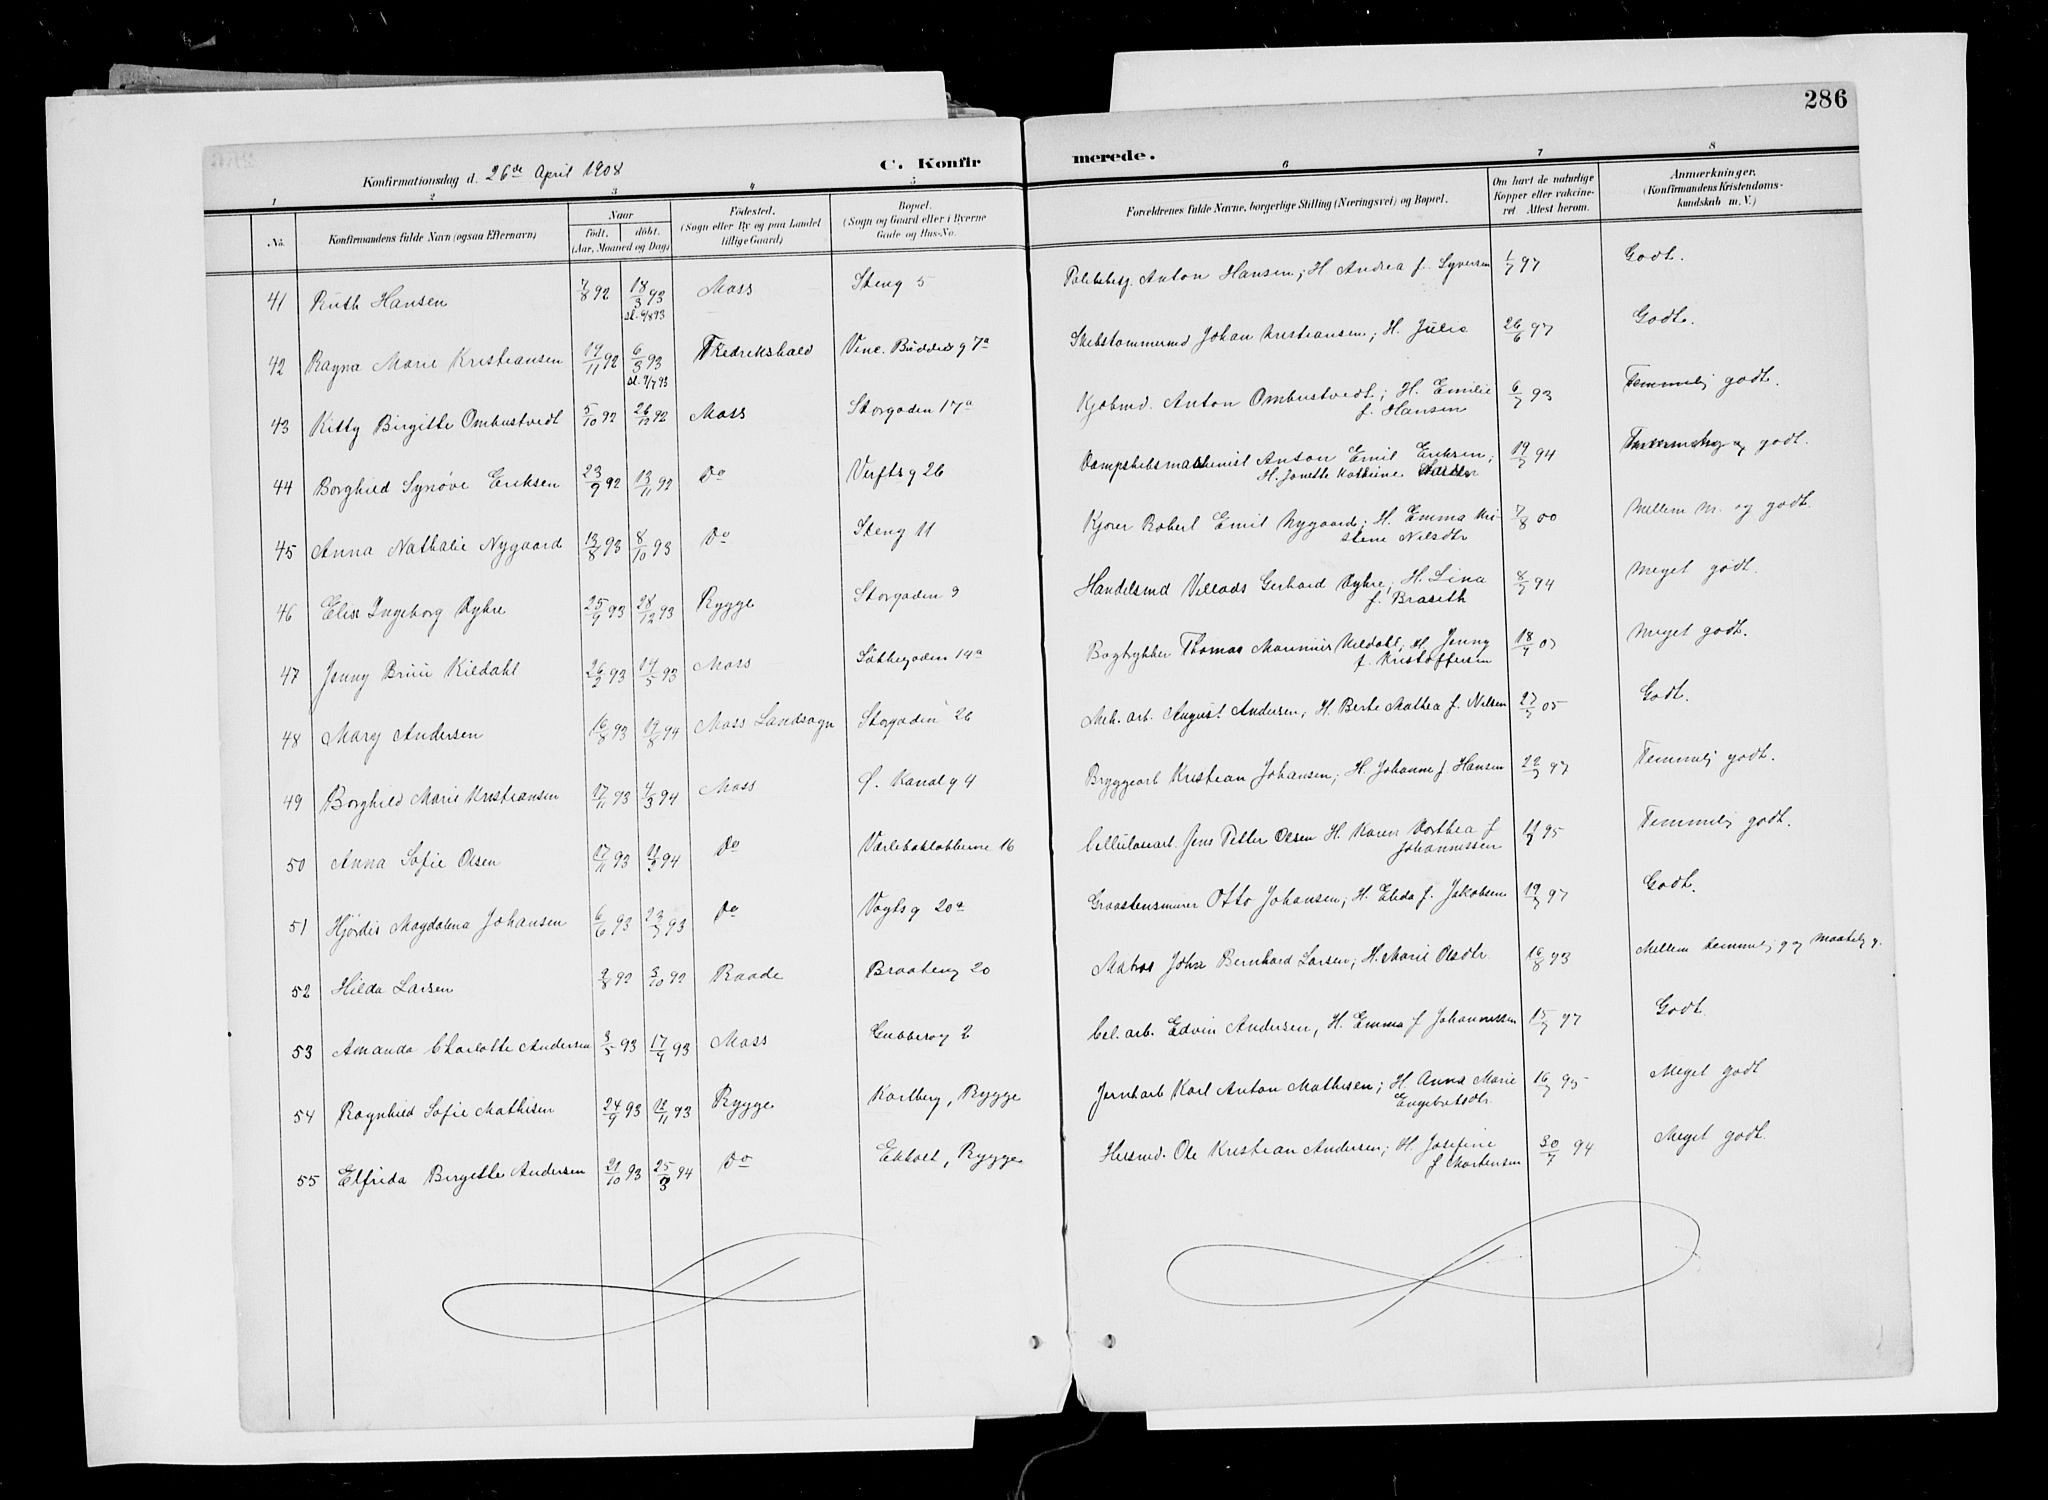 286
Konfirmationsdag d. 26de April 1908
C. Konfirmerede.
1 2 3 4 5 6 7 8
No. Konfirmandens fulde Navn (ogsaa Efternavn) Naar født. døbt. (Aar, Maaned og Dag) Fødested. (Sogn eller By og paa Landet tillige Gaard) Bopæl. (Sogn og Gaard eller i Byerne Gade og Hus-No. Forældrenes fulde Navne, borgerlige Stilling (Næringsvei) og Bopæl. Om havt de naturlige Kopper eller vakcineret Attest herom. Anmærkninger. (Konfirmandens Kristendomskundskab m. V.)
41 Ruth Hansen 7/8 92 18/3 93 Moss Steng 5 Anton Hansen; H. Andrea f. Syversen 1/7 97 Godt.
42 Ragna Marie Kristiansen 19/11 92 6/3 93 Fredrikshald Vinc. Buddesg 7a Skibstømmermd Johan Kristiansen; H. Julie 26/6 97 Godt.
43 Kitty Birgitte Ombustvedt 5/10 92 26/12 92 Moss Storgaden 17a Kjøbmd. Anton Ombustvedt; H. Emilie f. Hansen 6/7 93 Temmelig godt.
44 Borghild Synøve Eriksen 23/9 92 13/11 92 Do Verftsg 26 Dampskibsmaskinist Anton Emil Eriksen; H. Janette Kathrine 19/7 94 godt.
45 Anna Nathalie Nygaard 13/8 93 8/10 93 Do Steng 11 Kjører Robert Emil Nygaard; H. Emma Kristine Nilsdtr 7/8 00 Mellem M. og godt.
46 Elise Ingeborg Dyhre 25/9 93 28/12 93 Rygge Storgaden 9 Handelsmd Villads Gerhard Dyhre; H. Lina f. Braseth 8/7 94 Meget godt.
47 Jenny Kildahl 26/2 93 17/5 93 Moss 14a Bogtrykker Thomas Marinius Kildahl; H. Jenny f. Kristoffersen 18/7 Meget godt.
48 Mary Andersen 16/8 93 19/8 94 Moss Landsogn Storgaden 26 Mek. arb. August Andersen; H. Berte Mathea f. Nilsen 27/7 05 Godt.
49 Borghild Marie Kristiansen 17/11 93 4/3 94 Moss Ø. Kanalg 4 Bryggearb Kristian Johansen; H. Johanne f Hansen 22/7 97 Temmelig godt.
50 Anna Sofie Olsen 17/11 93 94 Do Værlebakløkkerne 16 Cellulosearb. Jens Petter Olsen H. Karen Dorthea f Johannessen 95 Temmelig godt.
51 Hjørdis Magdalena Johansen 6/6 93 23/7 93 Do Vogtsg 20a Graastensmurer Otto Johansen; H. Elida f. Jakobsen 19/7 97 Godt.
52 Hilda Larsen 2/8 92 3/10 92 Raade Braateng 20 Matros Johan Bernhard Larsen; H. Marie Olsdtr 16/8 93 Mellem temmelig g og maatelig g.
53 Amanda Charlotte Andersen 3/5 93 17/9 93 Moss Gubberog 2 Cel. arb. Edvin Andersen, H. Emma f Johannessen 15/7 97 Godt
54 Ragnhild Sofie Mathisen 24/9 93 12/11 93 Rygge Karlberg, Rygge Jernarb Karl Anton Mathisen; H. Anna Marie Engebretsdtr. 16/7 95 Meget godt
55 Elfrida Birgitte Andersen 21/10 93 25/3 94 Do Ekholt, Rygge Husmd. Ole Kristian Andersen; H. Josefine f Mortensen 30/7 94 Meget godt.